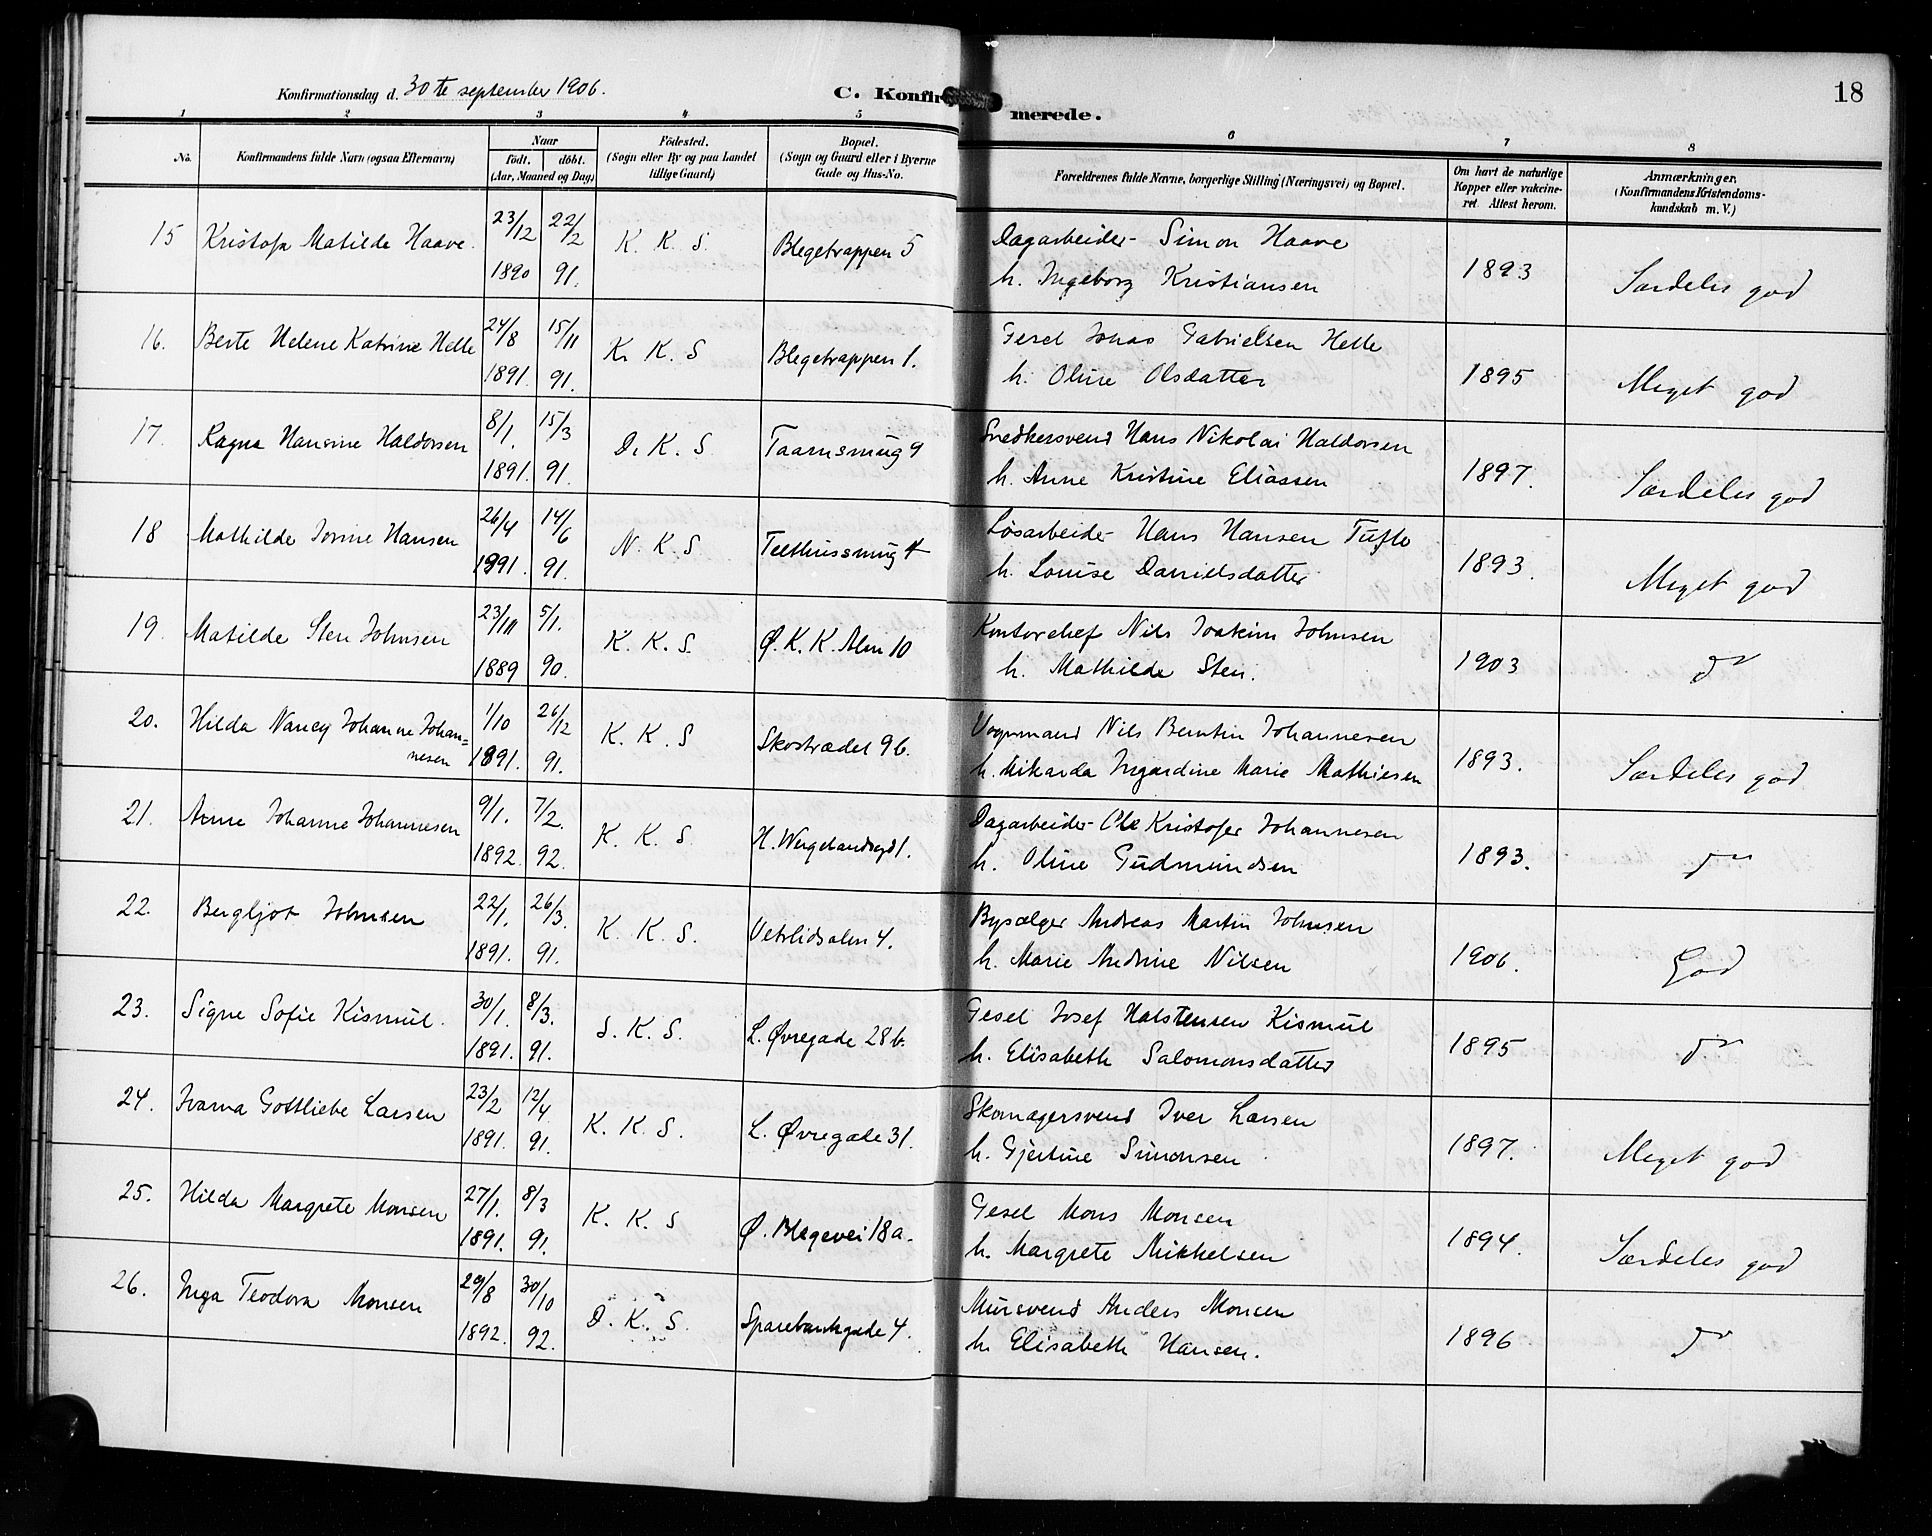 Konfirmationsdag d. 30te september 1906.
C. Konfirmerede.
18
1 2 3 4 5 6 7 8
No.
Konfirmandens fulde Navn (ogsaa Efternavn)
Naar
födt. döbt.
(Aar, Maaned og Dag)
Födested.
(Sogn eller By og paa Landet
tillige Gaard)
Bopæl.
(Sogn og Gaard eller i Byerne
Gade og Hus-No.
Forældrenes fulde Navne, borgerlige Stilling (Næringsvei) og Bopæl.
Om havt de naturlige
Kopper eller vaccine-
ret. Attest herom.
Anmærkninger.
(Konfirmandens Kristendoms-
kundskab m. V.)
15 Kristofa Matilde Haave. 23/12 22/2 K. K. S. Blegetrappen 5 Dagarbeider Simon Haave
1890 91. h. Ingeborg Kristiansen 1893 Særdeles god
16. Berte Helene Katrine Helle 24/8 15/11 K. K. S Blegetrappen 1. Gesel Jonas Gabrielsen Helle
1891. 91. h. Oline Olsdatter 1895 Meget god
17. Ragna Hansine Haldorsen 8/1. 15/3 D. K. S. Taarnsmug 9 Snedkersvend Hans Nikolai Haldorsen
1891. 91. h. Anne Kristine Eliassen 1897. Særdeles god
18 Mathilde Jovine Hansen 26/4 14/6 N. K. S Telthussmug 4 Løsarbeider Hans Hansen Tufte
1891. 91. h. Louise Danielsdatter 1893. Meget god
19. Matilde Sten Johnsen 23/11 5/1. K. K. S. Ø. K. K. Alm 10 Kontorchef Nils Joakim Johnsen
1889 90. h. Mathilde Sten. 1903 do
20. Hilda Nancy Johanne Johan= 1/10 26/12 K. K. S Skostrædet 9b. Vognmand Nils Berntin Johannesen
nesen 1891. 91. h. Mikarda Ingardine Marie Mathiesen 1893. Særdeles god
21. Anne Johanne Johannesen 9/1. 7/2. K. K. S. H. Wergelandsgd 1. Dagarbeider Ole Kristofer Johannesen
1892. 92. h. Oline Gudmundsen 1893. do
22. Bergljot Johnsen 22/1. 26/3. K. K. S. Vetrlidsalm 4. Bysælger Andreas Martin Johnsen
1891. 91. h. Marie Andrine Nilsen 1906. God
23. Signe Sofie Kismul. 30/1. 8/3. S. K. S. L. Øvregade 28b. Gesel Josef Halstensen Kismul
1891. 91. h. Elisabeth Salomonsdatter 1895 do
24. Ivarna Gottliebe Larsen 23/2 12/4 K. K. S. L. Øvregade 31. Skomagersvend Iver Larsen
1891. 91. h. Gjertine Simonsen 1897. Meget god
25. Hilda Margrete Monsen 27/1. 8/3 K. K. S Ø. Blegevei 18a. Gesel Mons Monsen
1891. 91. h. Margrete Mikkelsen 1894. Særdeles god
26. Inga Teodora Monsen 29/8 30/10 D. K. S. Sparebankgade 4. Mursvend Anders Monsen
1892. 92. h. Elisabeth Hansen. 1896 do